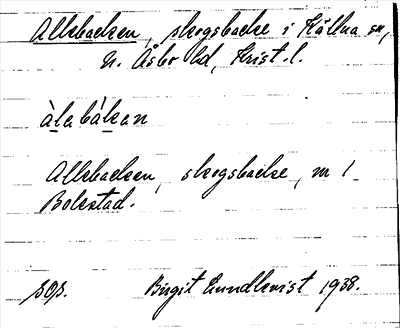 Allebacken, skogsbacke i Källna sn,
N. Åsbo hd, Krist. l.
àlabákan
Allebacken, skogsbacke, nr 1
Bolestad.
sop. Birgit Lundkvist 1938.